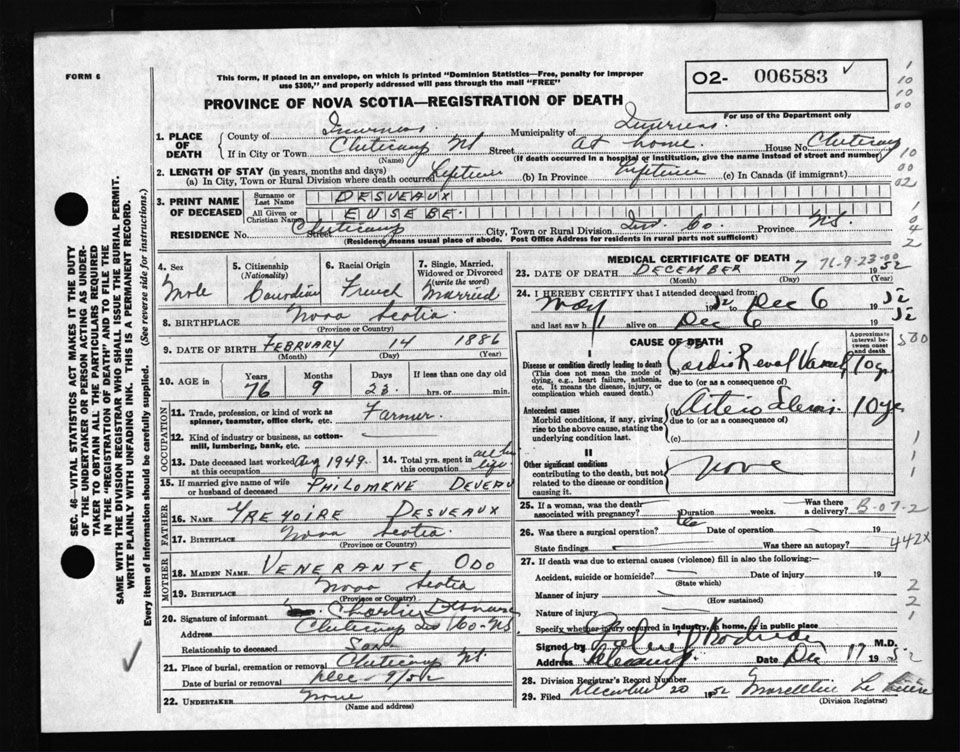 FORM 6
This form, if placed in an envelope, on which is printed "Dominion Statistics—Free, penalty for improper
use $300," and properly addressed will pass through the mail "FREE"
O2- 006583 ✓
For use of the Department only
PROVINCE OF NOVA SCOTIA—REGISTRATION OF DEATH
1. PLACE OF DEATH
County of Inverness Municipality of Inverness
If in City or Town Cheticamp NS Street At home House No. Cheticamp
(Name) (If death occurred in a hospital or institution, give the name instead of street and number)
2. LENGTH OF STAY (in years, months and days)
(a) In City, Town or Rural Division where death occurred Lifetime (b) In Province Lifetime (c) In Canada (if immigrant)
3. PRINT NAME OF DECEASED
Surname or Last Name DESVEAUX
All Given or Christian Names EUSEBE.
RESIDENCE No. Cheticamp Street City, Town or Rural Division Inv. Co. Province NS.
(Residence means usual place of abode. Post Office Address for residents in rural parts not sufficient)
4. Sex Male
5. Citizenship (Nationality) Canadian
6. Racial Origin French
7. Single, Married, Widowed or Divorced (write the word) Married
8. BIRTHPLACE Nova Scotia
(Province or Country)
9. DATE OF BIRTH FEBRUARY 14 1886
(Month) (Day) (Year)
10. AGE in Years 76 Months 9 Days 23 If less than one day old hrs. or min.
OCCUPATION
11. Trade, profession, or kind of work as spinner, teamster, office clerk, etc. Farmer.
12. Kind of industry or business, as cotton-mill, lumbering, bank, etc.
13. Date deceased last worked at this occupation Aug 1949
14. Total yrs. spent in this occupation all his life
15. If married give name of wife or husband of deceased PHILOMENE DEVEAU
FATHER
16. NAME GREGOIRE DESVEAUX
17. BIRTHPLACE Nova Scotia
(Province or Country)
MOTHER
18. MAIDEN NAME VENERANTE ODO
19. BIRTHPLACE Nova Scotia
(Province or Country)
20. Signature of informant Charlie
Address Cheticamp Inv Co. NS
Relationship to deceased Son
21. Place of burial, cremation or removal Cheticamp NS.
Date of burial or removal Dec 9/52
22. UNDERTAKER None
(Name and address)
MEDICAL CERTIFICATE OF DEATH
23. DATE OF DEATH DECEMBER 7 76-9-23-00 1952
(Month) (Day) (Year)
24. I HEREBY CERTIFY that I attended deceased from:
May 1952 Dec 6 1952
and last saw h alive on Dec 6 1952
CAUSE OF DEATH
Approximate interval between onset and death
I
Disease or condition directly leading to death
(This does not mean the mode of dying, e.g., heart failure, asthenia, etc. It means the disease, injury, or complication which caused death.)
(a) Cardio Renal Vascul 10 yrs
due to (or as a consequence of)
Antecedent causes
Morbid conditions, if any, giving rise to the above cause, stating the underlying condition last.
(b) Arterio Sclerosis 10 yrs
due to (or as a consequence of)
(c)
II
Other significant conditions
contributing to the death, but not related to the disease or condition causing it.
None
25. If a woman, was the death associated with pregnancy? Duration weeks. Was there a delivery? B-07-2
26. Was there a surgical operation? No Date of operation 19
State findings Was there an autopsy? 442X
27. If death was due to external causes (violence) fill in also the following:
Accident, suicide or homicide? Date of injury 19
(State which)
Manner of injury
(How sustained)
Nature of injury
Specify whether injury occurred in industry, in home, or in public place
Signed by M.D.
Address Date Dec 17 1952
28. Division Registrar's Record Number
29. Filed December 20 1952
(Division Registrar)
SEC. 46—VITAL STATISTICS ACT MAKES IT THE DUTY
OF THE UNDERTAKER OR PERSON ACTING AS UNDER-
TAKER TO OBTAIN ALL THE PARTICULARS REQUIRED
IN THE "REGISTRATION OF DEATH" AND TO FILE THE
SAME WITH THE DIVISION REGISTRAR WHO SHALL ISSUE THE BURIAL PERMIT.
WRITE PLAINLY WITH UNFADING INK. THIS IS A PERMANENT RECORD.
Every item of information should be carefully supplied. (See reverse side for instructions.)